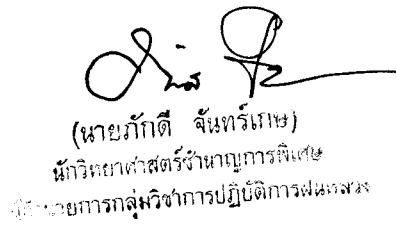 (นายภักดี จันทร์เกษ)
นักวิทยาศาสตร์ชำนาญการพิเศษ
ผู้อำนวยการกลุ่มวิชาการปฏิบัติการฝนหลวง